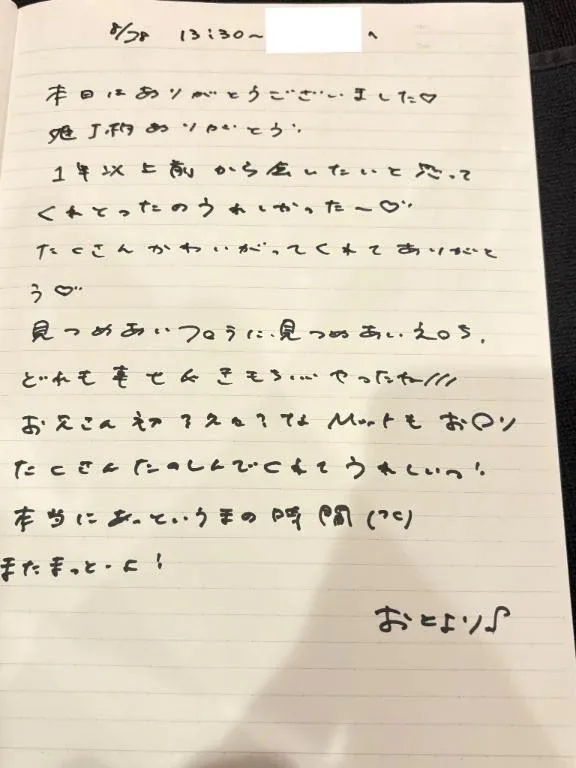 8/28 13:30〜 へ
本日はありがとうございました♡
姫予約ありがとう!
1年以上前から会いたいと思って
くれとったのうれしかった〜♡
たくさんかわいがってくれてありがと
う♡
見つめあいフ○らに、見つめあいえ○ち、
どれも幸せ きもちい やったね///
お兄さん初 な Mットもお○り
たくさんたのしんでくれてうれしいっ!
本当にあっというまの時間
またまっとーよ!
おとより♪